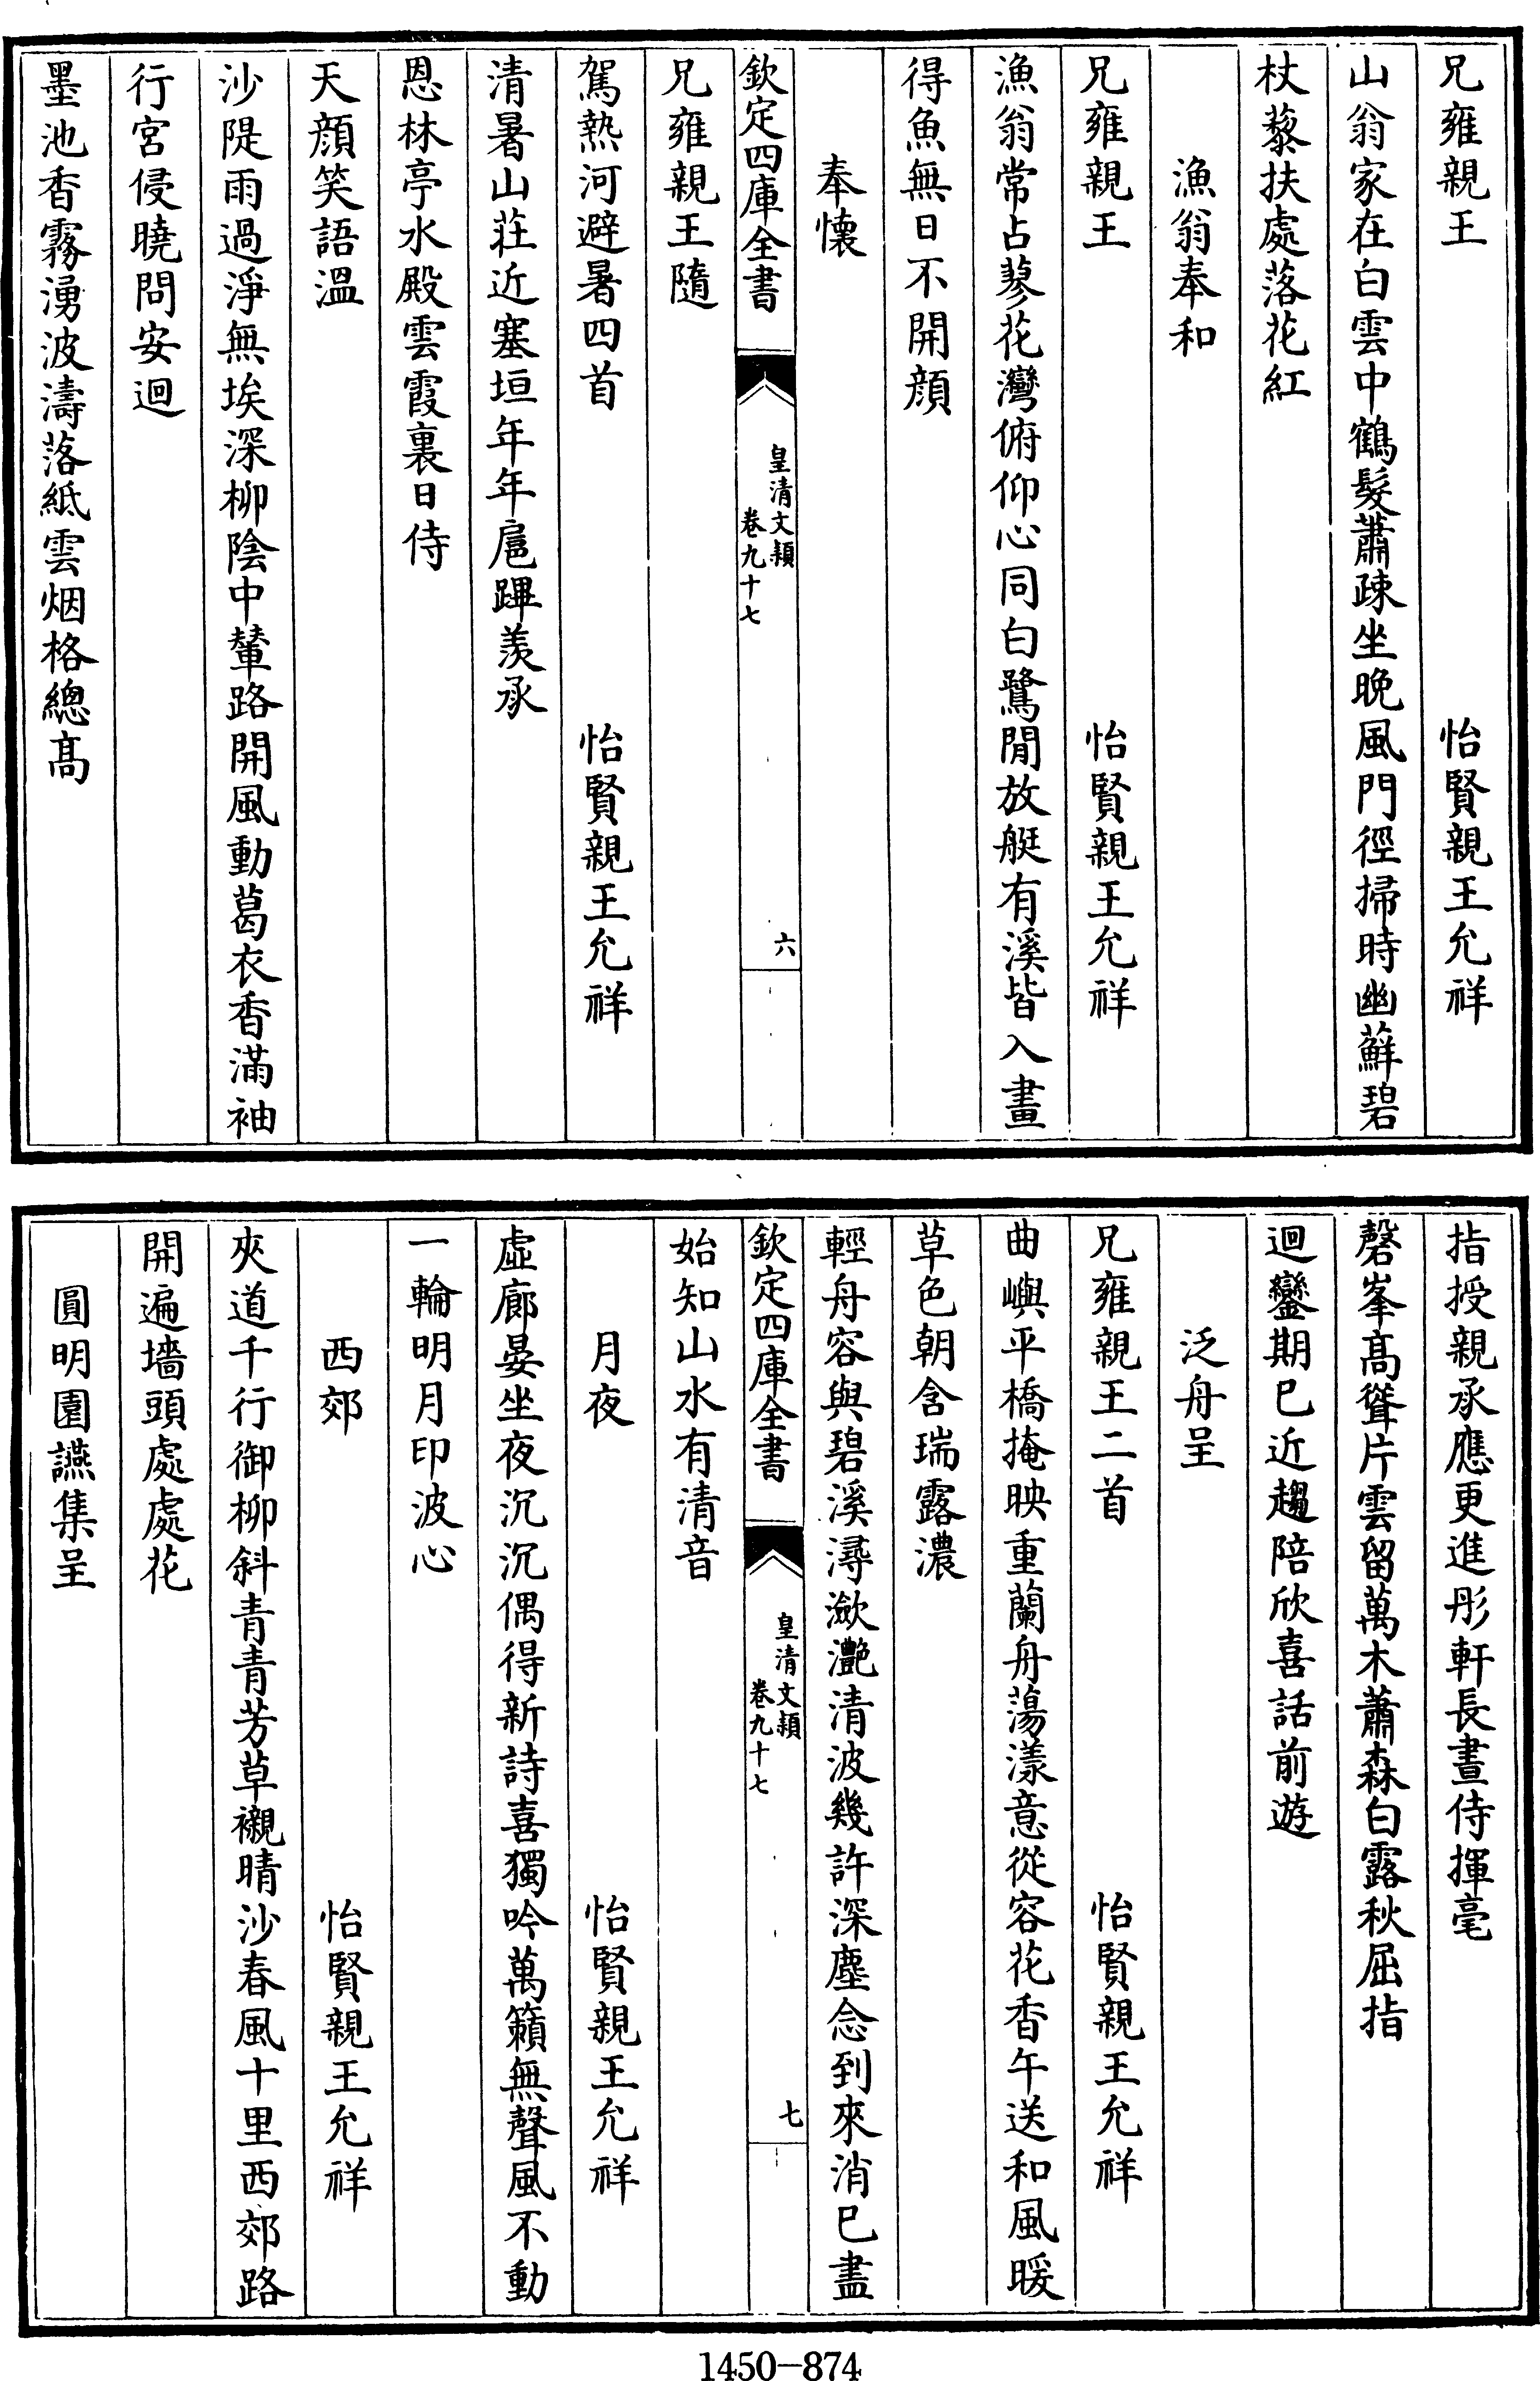 兄雍親王　怡賢親王允祥
山翁家在白雲中鶴髮蕭疎坐晚風門徑掃時幽蘚碧
杖藜扶處落花紅
漁翁奉和
兄雍親王　怡賢親王允祥
漁翁常占蓼花灣俯仰心同白鷺閒放艇有溪皆入畫
得魚無日不開顔
奉懷
欽定四庫全書　皇清文頴卷九十七　六
兄雍親王隨
駕熱河避暑四首　怡賢親王允祥
清暑山莊近塞垣年年扈蹕羨承
恩林亭水殿雲霞裏日侍
天顔笑語溫
沙隄雨過淨無埃深柳陰中輦路開風動葛衣香滿袖
行宮侵曉問安迴
墨池香霧湧波濤落紙雲烟格總髙
指授親承應更進彤軒長晝侍揮毫
磬峯髙聳片雲留萬木蕭森白露秋屈指
迴鑾期已近趨陪欣喜話前遊
泛舟呈
兄雍親王二首　怡賢親王允祥
曲嶼平橋掩映重蘭舟蕩漾意從容花香午送和風暖
草色朝含瑞露濃
輕舟容與碧溪潯瀲灧清波幾許深塵念到來消已盡
欽定四庫全書　皇清文頴卷九十七　七
始知山水有清音
月夜　怡賢親王允祥
虛廊晏坐夜沉沉偶得新詩喜獨吟萬籟無聲風不動
一輪明月印波心
西郊　怡賢親王允祥
夾道千行御柳斜青青芳草襯晴沙春風十里西郊路
開遍墻頭處處花
圓明園讌集呈
1450-874